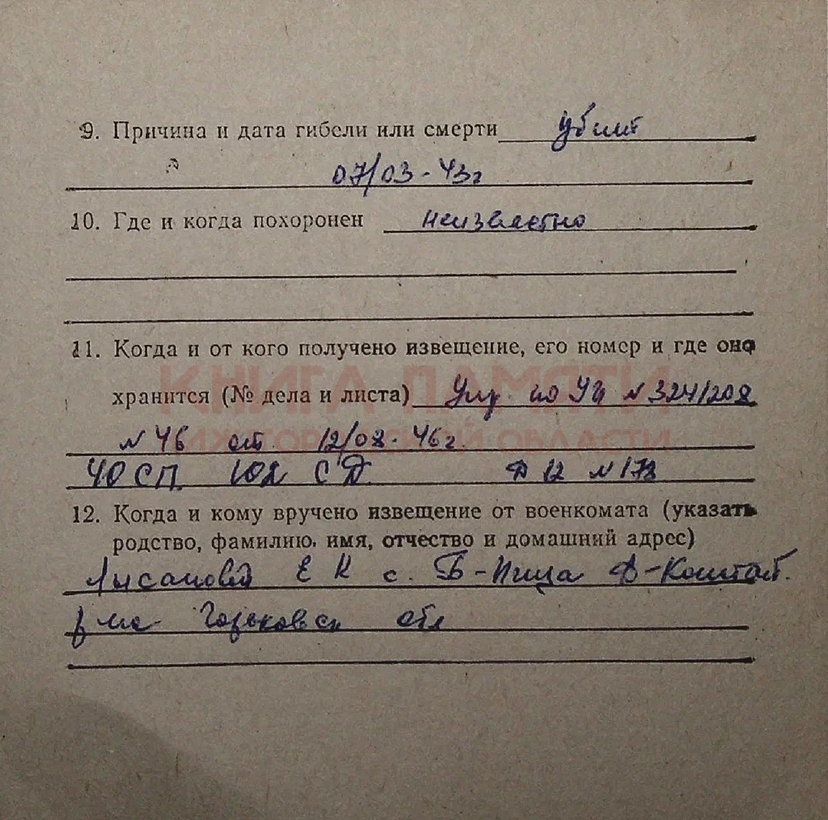 9. Причина и дата гибели или смерти убит
07/03-43г
10. Где и когда похоронен неизвестно
11. Когда и от кого получено извещение, его номер и где оно
КНИГА ПАМЯТИ
хранится (№ дела и листа) Упр по УП N 324/208
НИЖЕГОРОДСКОЙ ОБЛАСТИ
N 46 от 12/08-46г
40 СП 102 СД Д 12 N 178
12. Когда и кому вручено извещение от военкомата (указать
родство, фамилию, имя, отчество и домашний адрес)
Лысановой Е К с. Б-Пица Д-Констант.
р-на Горьковск обл